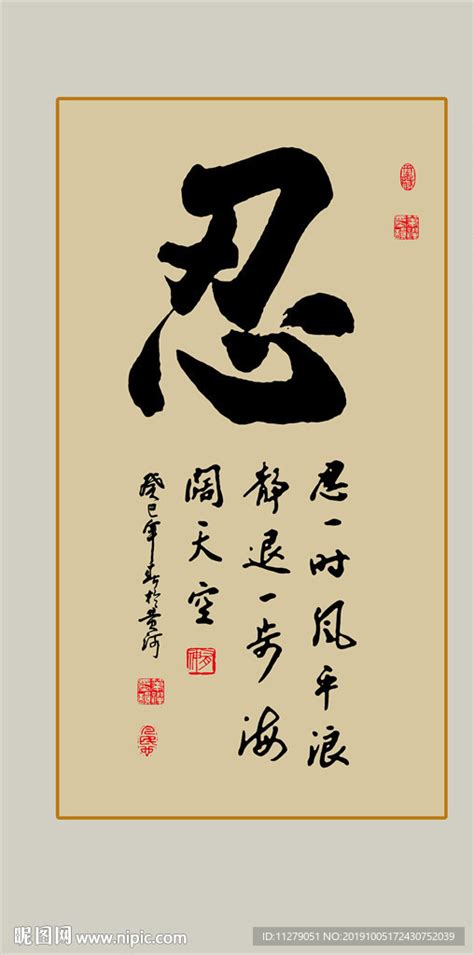 忍
忍一时风平浪
静退一步海
阔天空
癸巳年春於黄河
昵图网 www.nipic.com
ID:11279051 NO:20191005172430752039